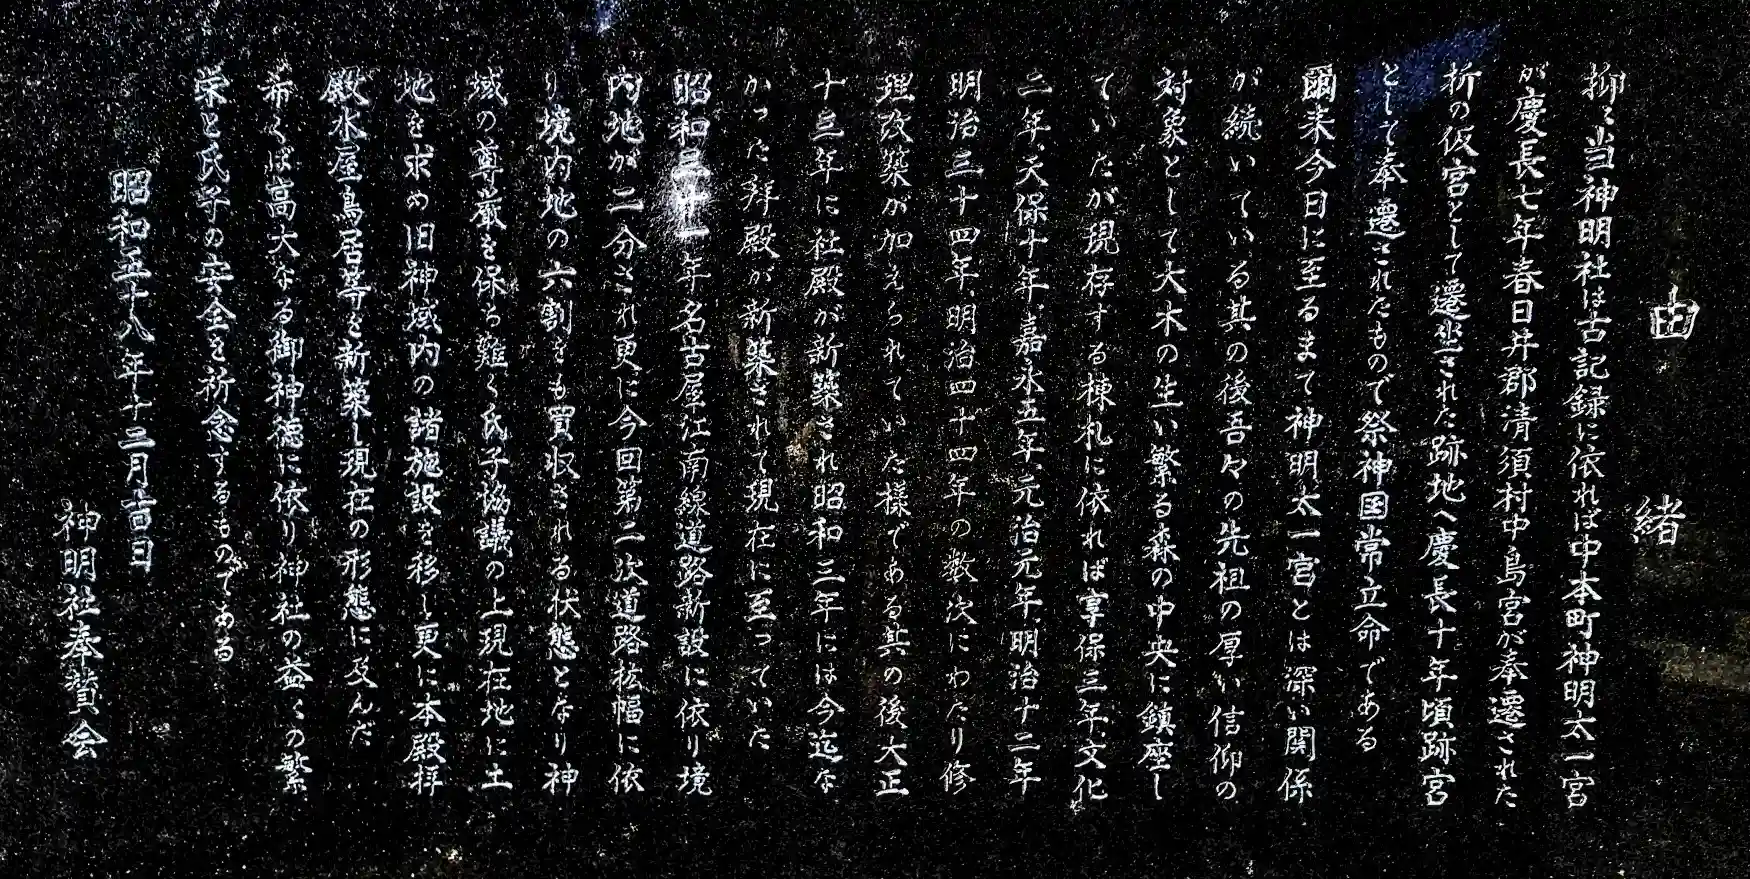 由緒
抑々当神明社は古記録に依れば中本町神明太一宮
が慶長七年春日井郡清須村中島宮が奉遷された
折の仮宮として遷坐された跡地へ慶長十年頃跡宮
として奉遷されたもので祭神国常立命である
爾来今日に至るまで神明太一宮とは深い関係
が続いている其の後吾々の先祖の厚い信仰の
対象として大木の生い繁る森の中央に鎮座し
ていたが現存する棟札に依れば享保三年、文化
二年、天保十年、嘉永五年、元治元年、明治十二年
明治三十四年、明治四十四年の数次にわたり修
理改築が加えられていた様である其の後大正
十三年に社殿が新築され昭和三年には今迄な
かった拝殿が新築されて現在に至っていた
昭和三十一年名古屋江南線道路新設に依り境
内地が二分され更に今回第二次道路拡幅に依
り境内地の六割をも買収される状態となり神
域の尊厳を保ち難く氏子協議の上現在地に土
地を求め旧神域内の諸施設を移し更に本殿拝
殿水屋鳥居等を新築し現在の形態に及んだ
希くば高大なる御神徳に依り神社の益々の繁
栄と氏子の安全を祈念するものである
昭和五十八年十二月吉日
神明社奉賛会